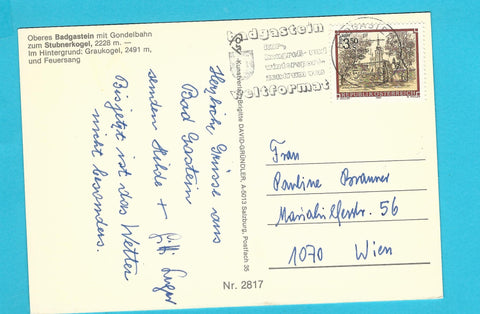 Oberes Badgastein mit Gondelbahn
zum Stubnerkogel, 2228 m. —
Im Hintergrund: Graukogel, 2491 m,
und Feuersang
Herzliche Grüsse aus
Bad Gastein
senden Hilde +
Bis jetzt ist das Wetter
nicht besonders.
Kunstverlag Brigitte DAVID-GRÜNDLER, A-5013 Salzburg, Postfach 35
badgastein
weltformat
3.50
REPUBLIK ÖSTERREICH
Frau
Pauline Brunner
Mariahilferstr. 56
1070 Wien
Nr. 2817